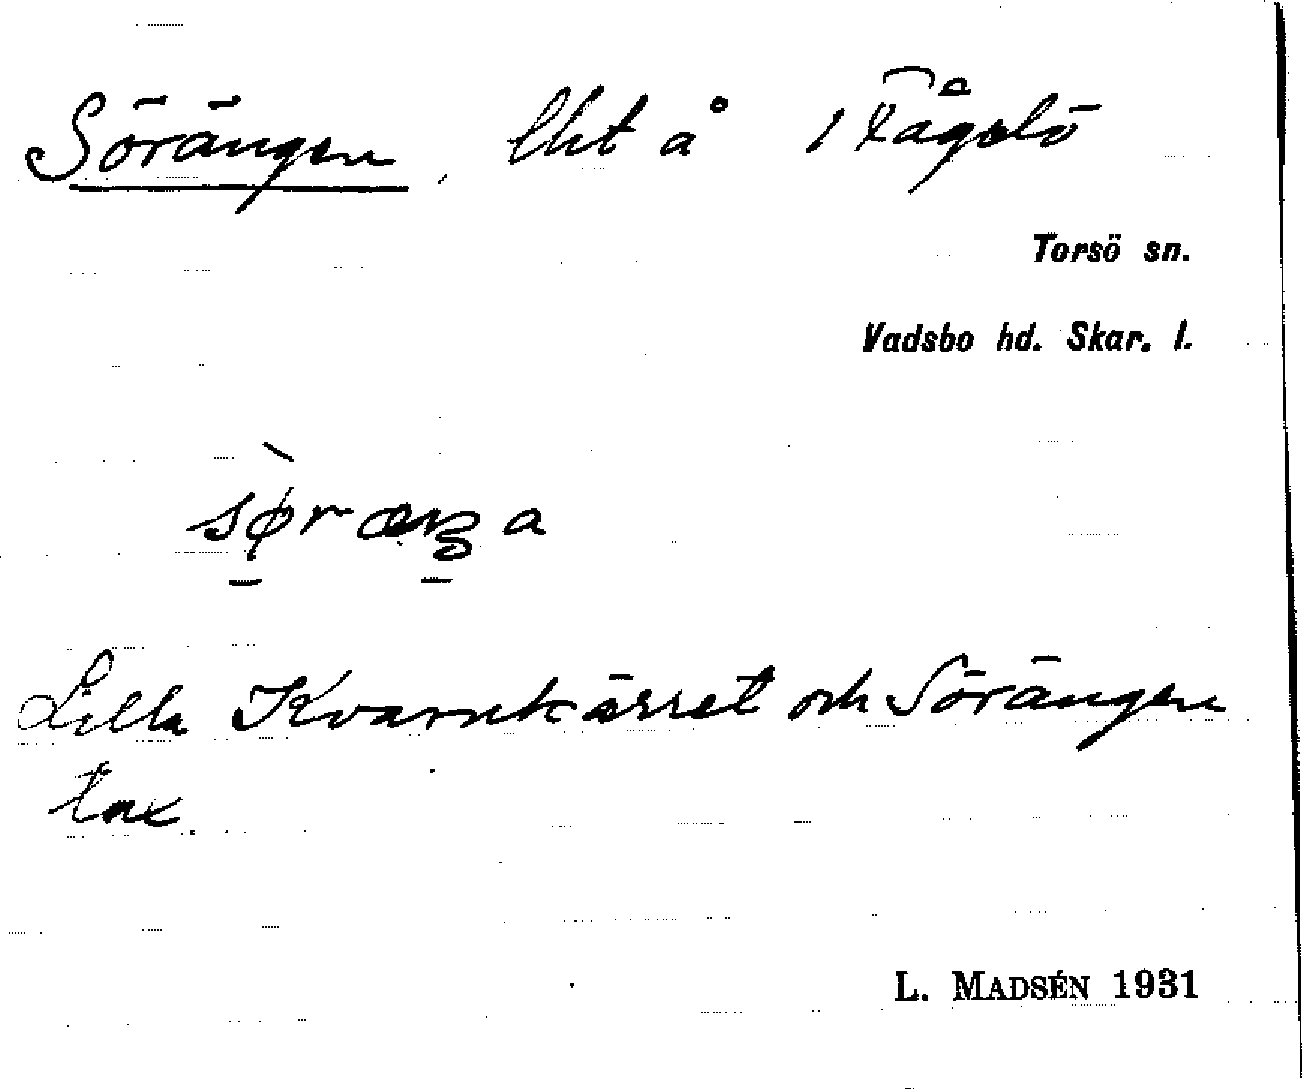 Sörängen, lht å 1 Fågelö
Torsö sn.
Vadsbo hd. Skar. l.
Lilla Kvarnkärret och Sörängen
tax.
L. MADSÉN 1931